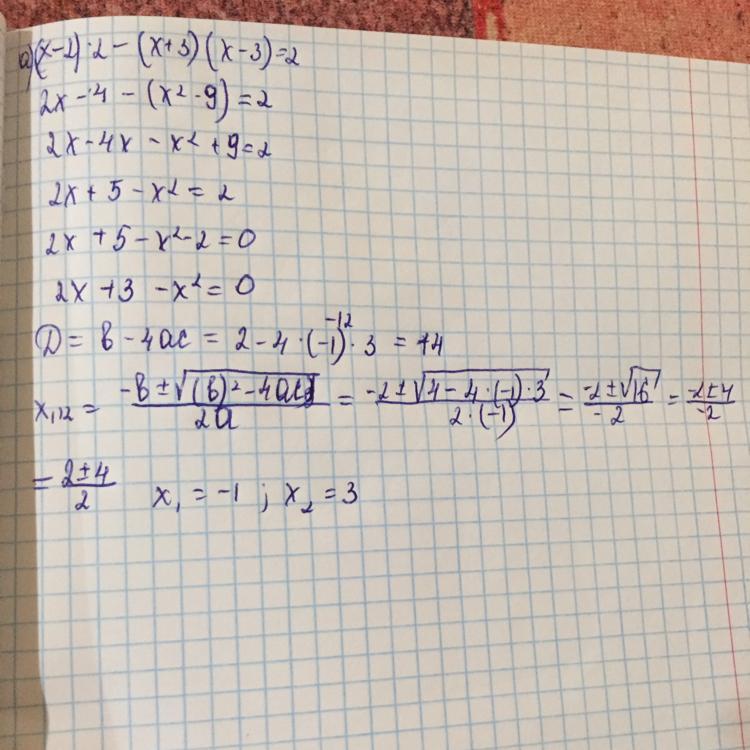 a) (x-2)·2 - (x+3)(x-3)=2
2x - 4 - (x²-9)=2
2x-4x-x²+9=2
2x+5-x²=2
2x+5-x²-2=0
2x+3-x²=0
D = b-4ac = 2-4·(-1)·3 = 14
-12
x₁,₂ = (-b±√((b)²-4ac))/2a = (-2±√(4-4·(-1)·3))/(2·(-1)) = (-2±√16)/-2 = (-2±4)/-2
= (2±4)/2 x₁=-1; x₂=3